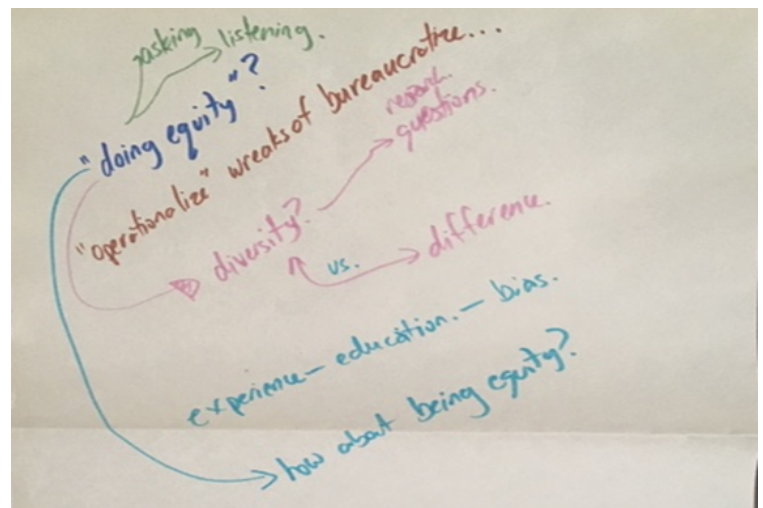 asking
listening.
"doing equity"?
"operationalize" wreaks of bureaucratize...
research.
questions.
diversity?
vs.
difference.
experience – education. – bias.
how about being equity?